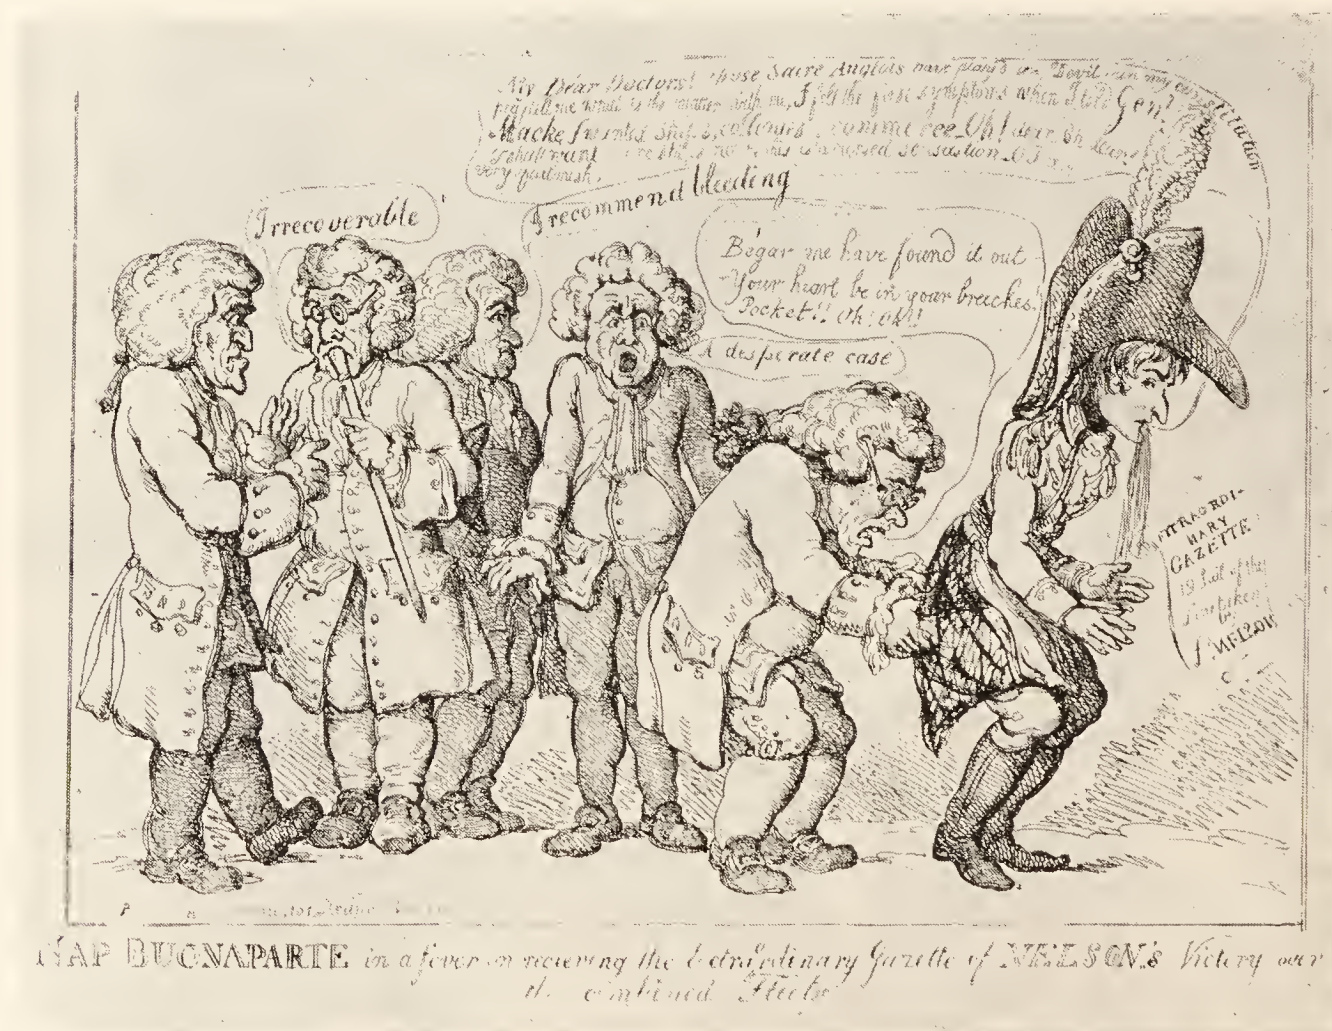 My Dear Doctors! those Sacre Anglois have play'd the Devil in my constitution
me what is the matter with me, I felt the first symptoms when I told Gen.l
Mack I wanted ships, colonies, commerce Oh! dear Oh dear
I shall want this is a cursed sensation Oh I
very qualmish.
Irrecoverable
I recommend bleeding
Begar me have found it out
Your heart be in your breeches
Pocket!! Oh! Oh!!
A desperate case
EXTRAORDI-
NARY
GAZETTE
19 Sail of the
Line taken
by
NELSON
NAP BUONAPARTE in a fever on receiving the Extraordinary Gazette of NELSON's Victory over
the combined Fleets